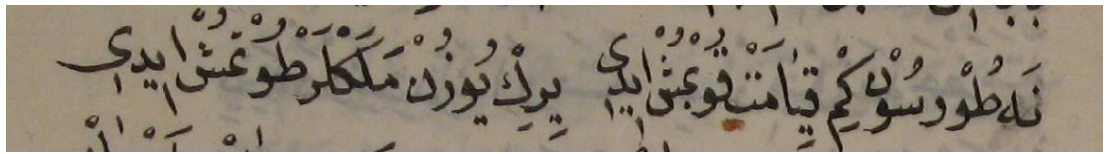 نَه طُوْرسُوْن كِمْ قِيَامَتْ قُوْپْمُشْ ايدى يِرِكْ يُوزُنْ مَلَكْلَرْ طُوْتْمُشْ ايدى